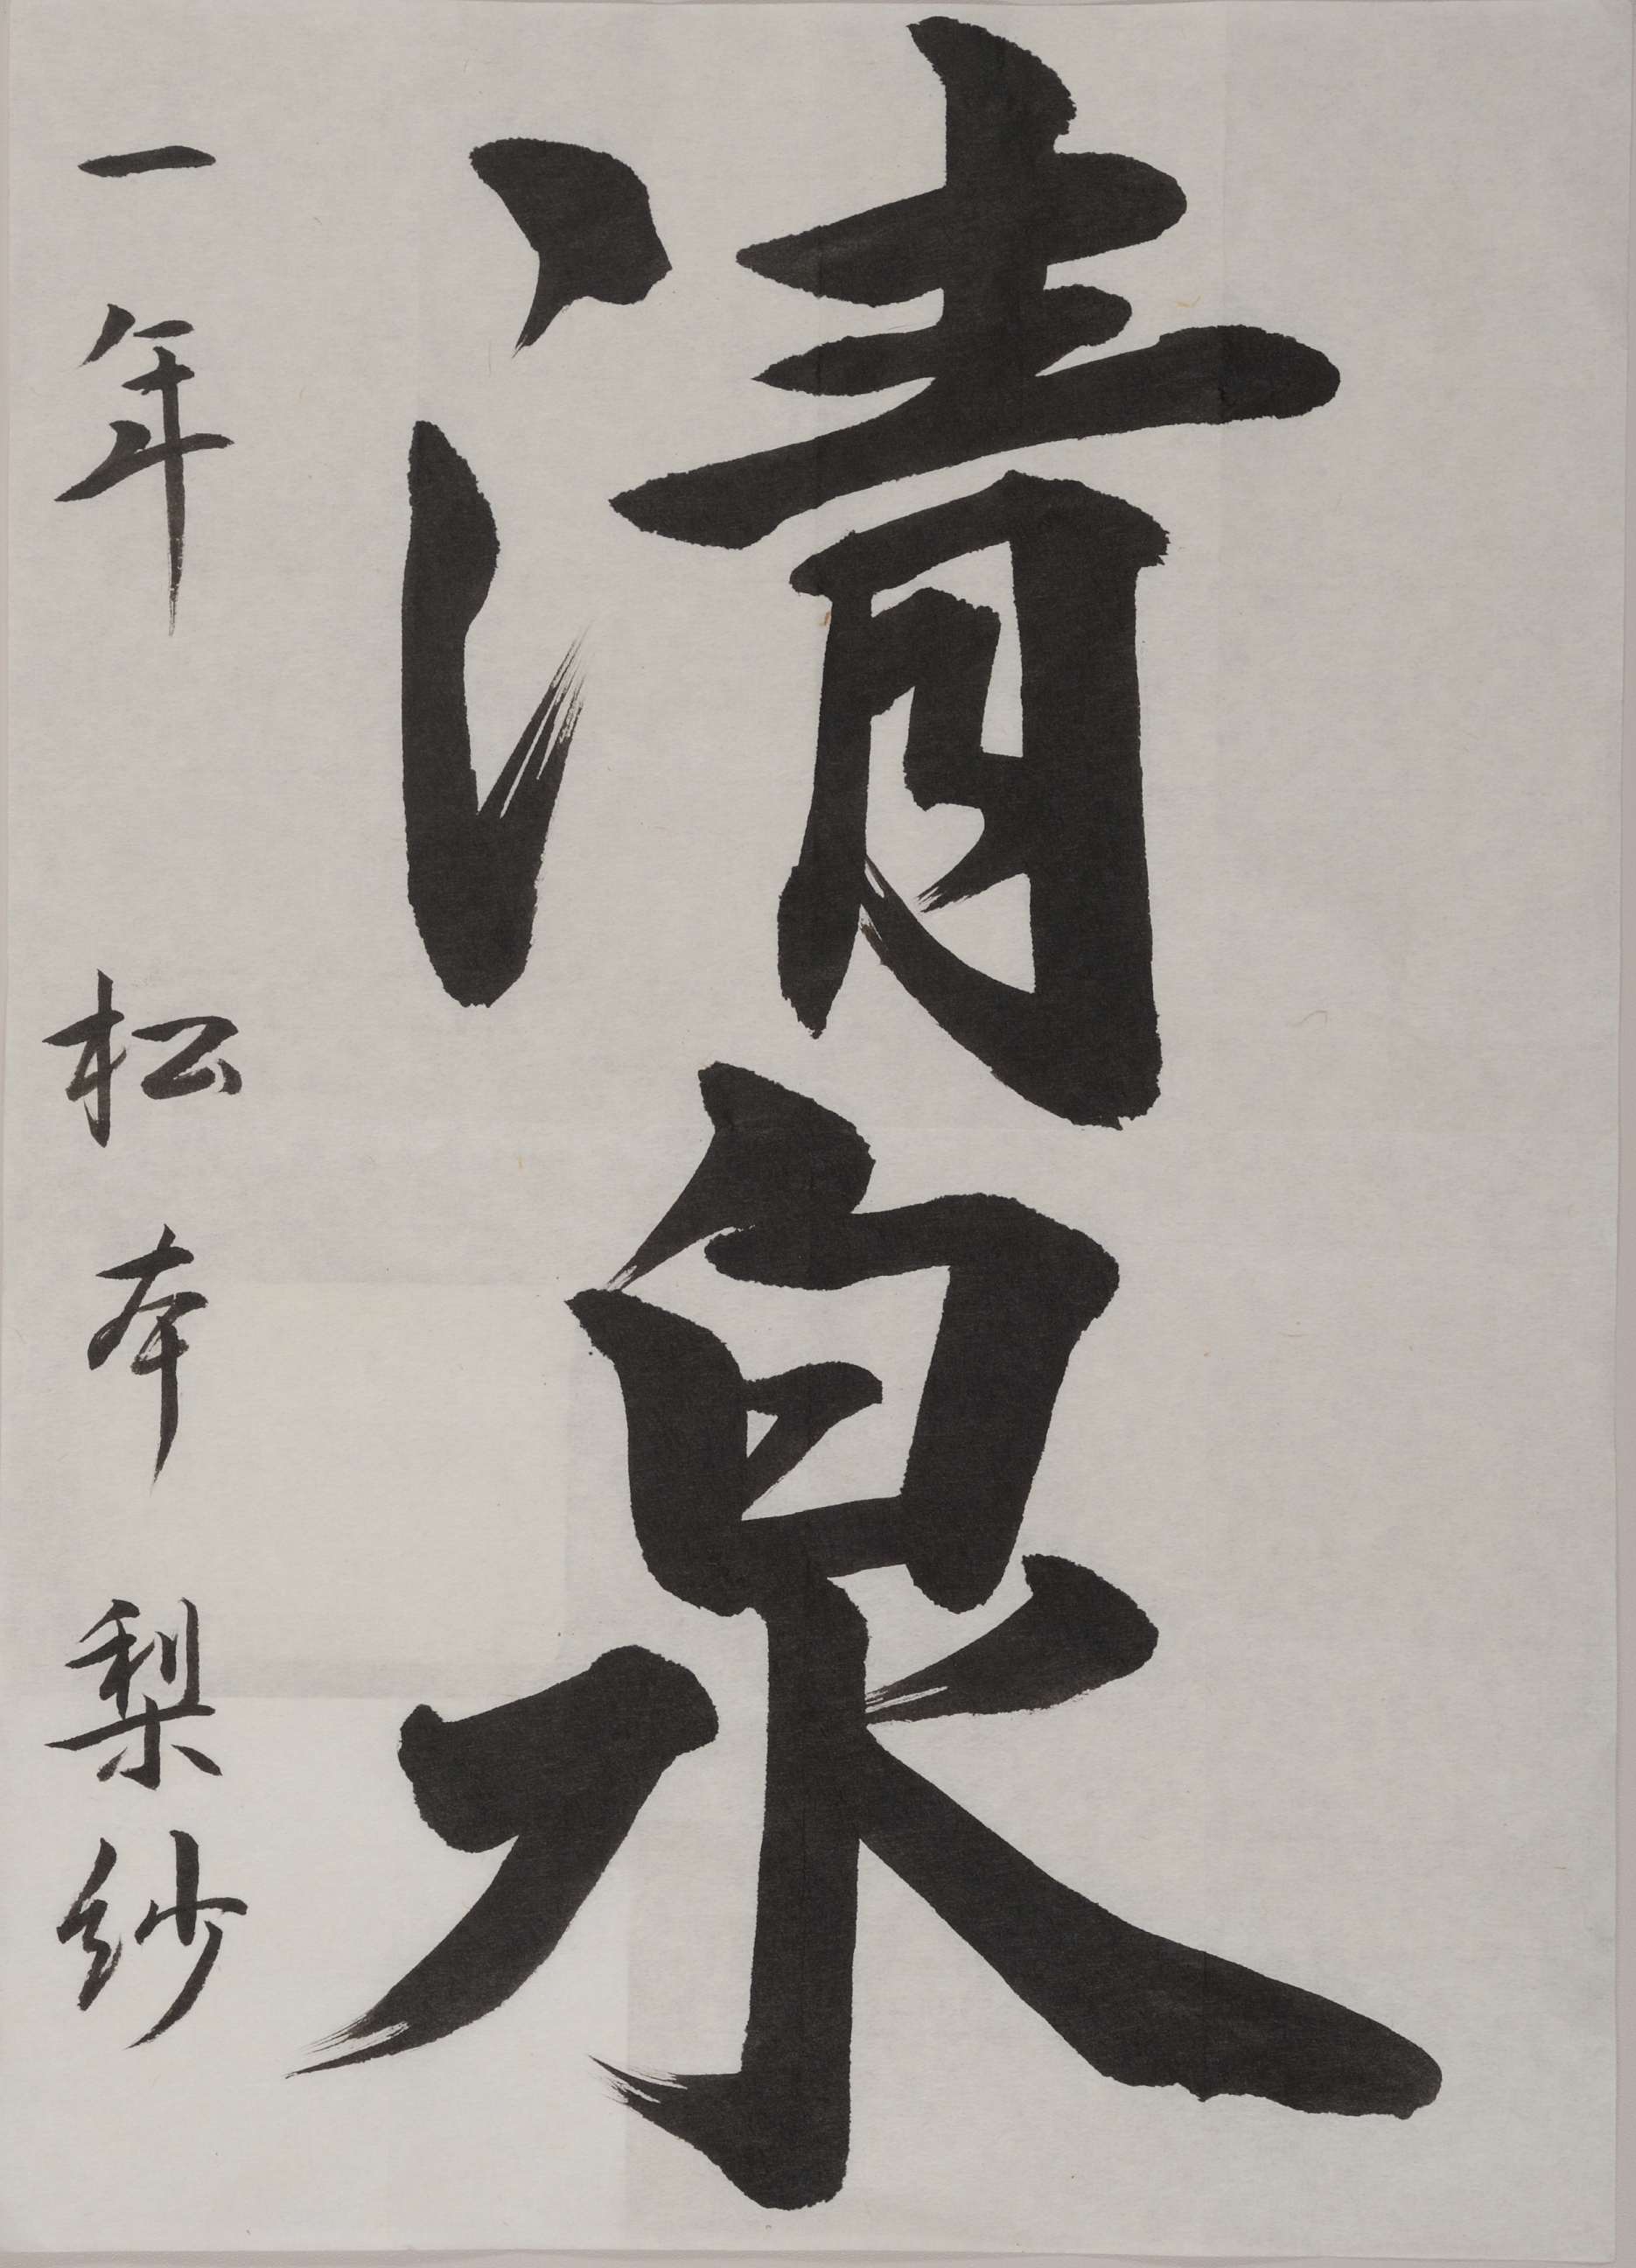 清泉
一年 松本 梨紗